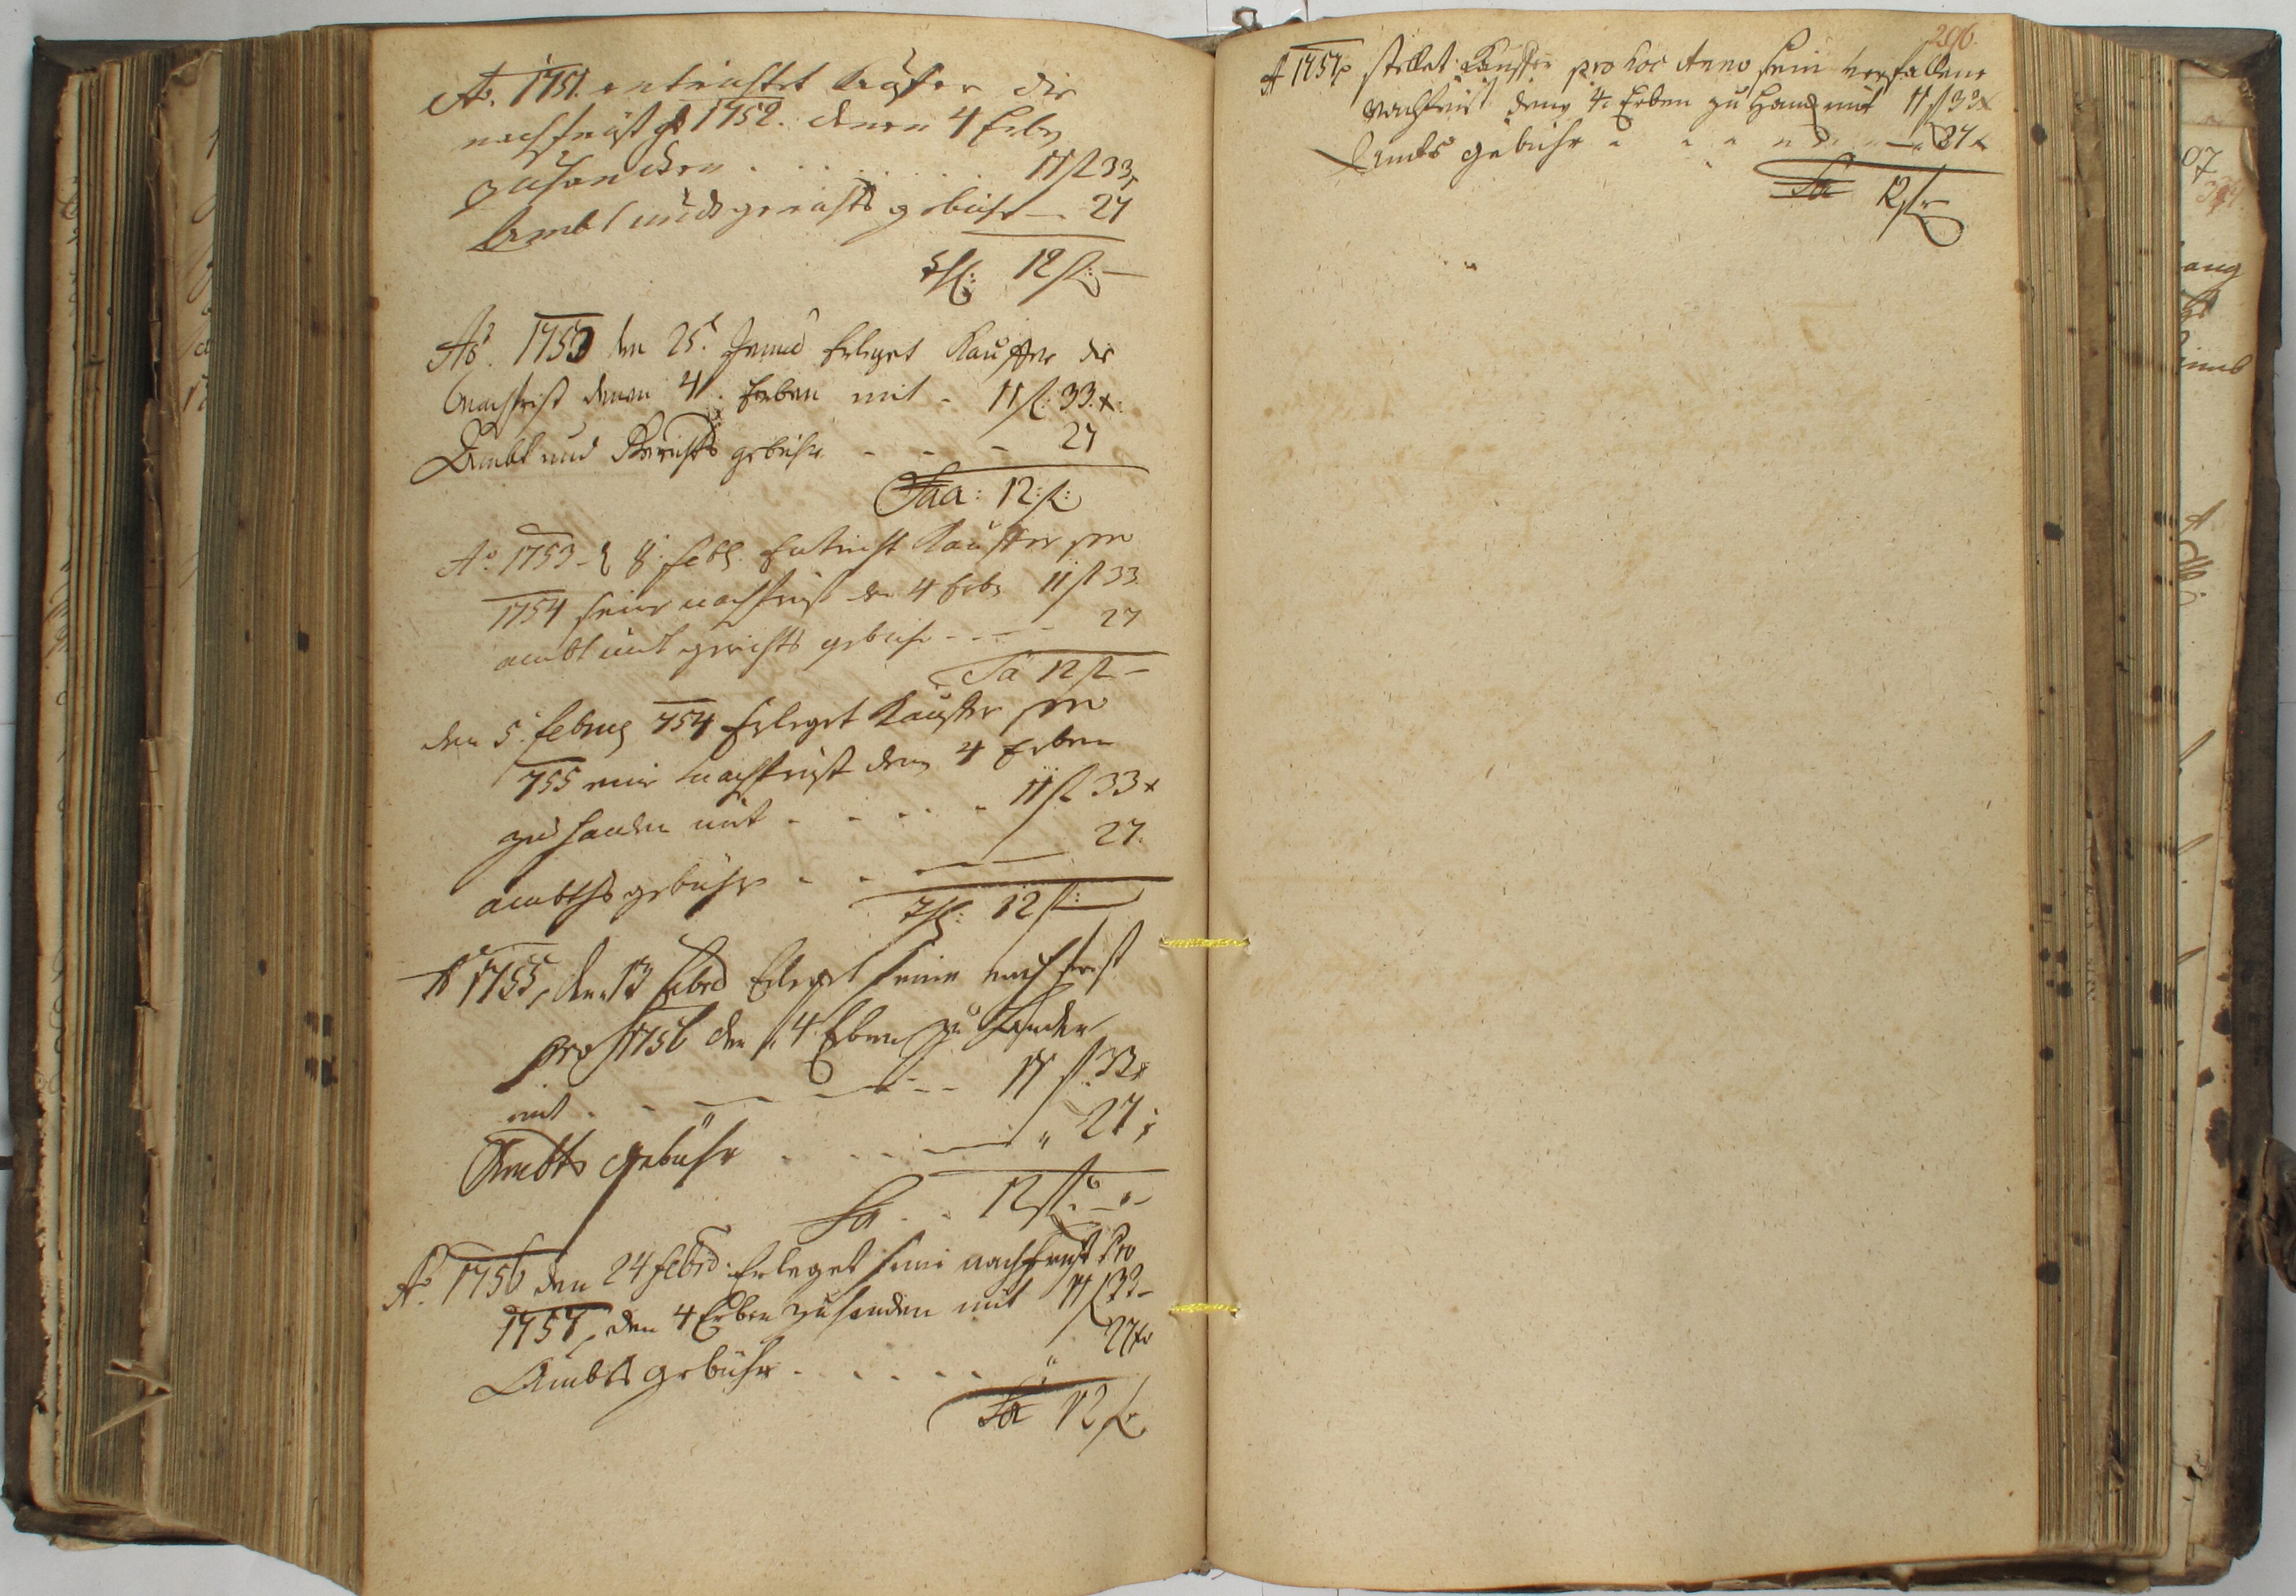 Ao. 1751. entrichtet Kauffer die
nachfrist pr 1752. denen 4 Erben
zuhanden . . . . . . 11 fl 33
Ambt und gerichts gebühr — 27
12 fl: —
Ao. 1753 den 25. Erleget Kauffer die
Nachfrist denen 4. Erben mit - 11 fl: 33. x:
Ambt und Gerichts gebühr - - - 27
Saa: 12: fl:
Ao. 1753 - d 8. feb. Entricht Kauffer pro
1754 seine nachfrist den 4 Erben 11 fl 33
ambt und gerichts gebühr - - - - 27
Sa 12 fl -
den 5. februar 754 Erleget Kauffer pro
755 eine Nachfrist denen 4 Erben
zu handen mit - - . . - 11 fl 33 x
27.
ambtsgebühr - - —
12 fl: —
Ao 1755, den 13 Febr Erleget seine nachfrist
pro 1756 den 4 Erben zu handen
mit . - - - - - - 11 fl. 33 x
Ambts gebühr . . . - — " 27 x
Sa . . 12 fl. - "
Ao. 1756 den 24 febr: Erleget seine nachfrist Pro
1757, den 4 Erben zuhanden mit 11 fl 33 -
27 x
Ambts gebühr . . . . . "
Sa 12 fl
296.
A 1757 stellet Kauffer pro hoc Anno sein verfallene
Nachfrist denen 4 Erben zu Hand mit 11 fl 33 x
Ambts gebühr " " " " " — " 27 x
Sa 12 fl